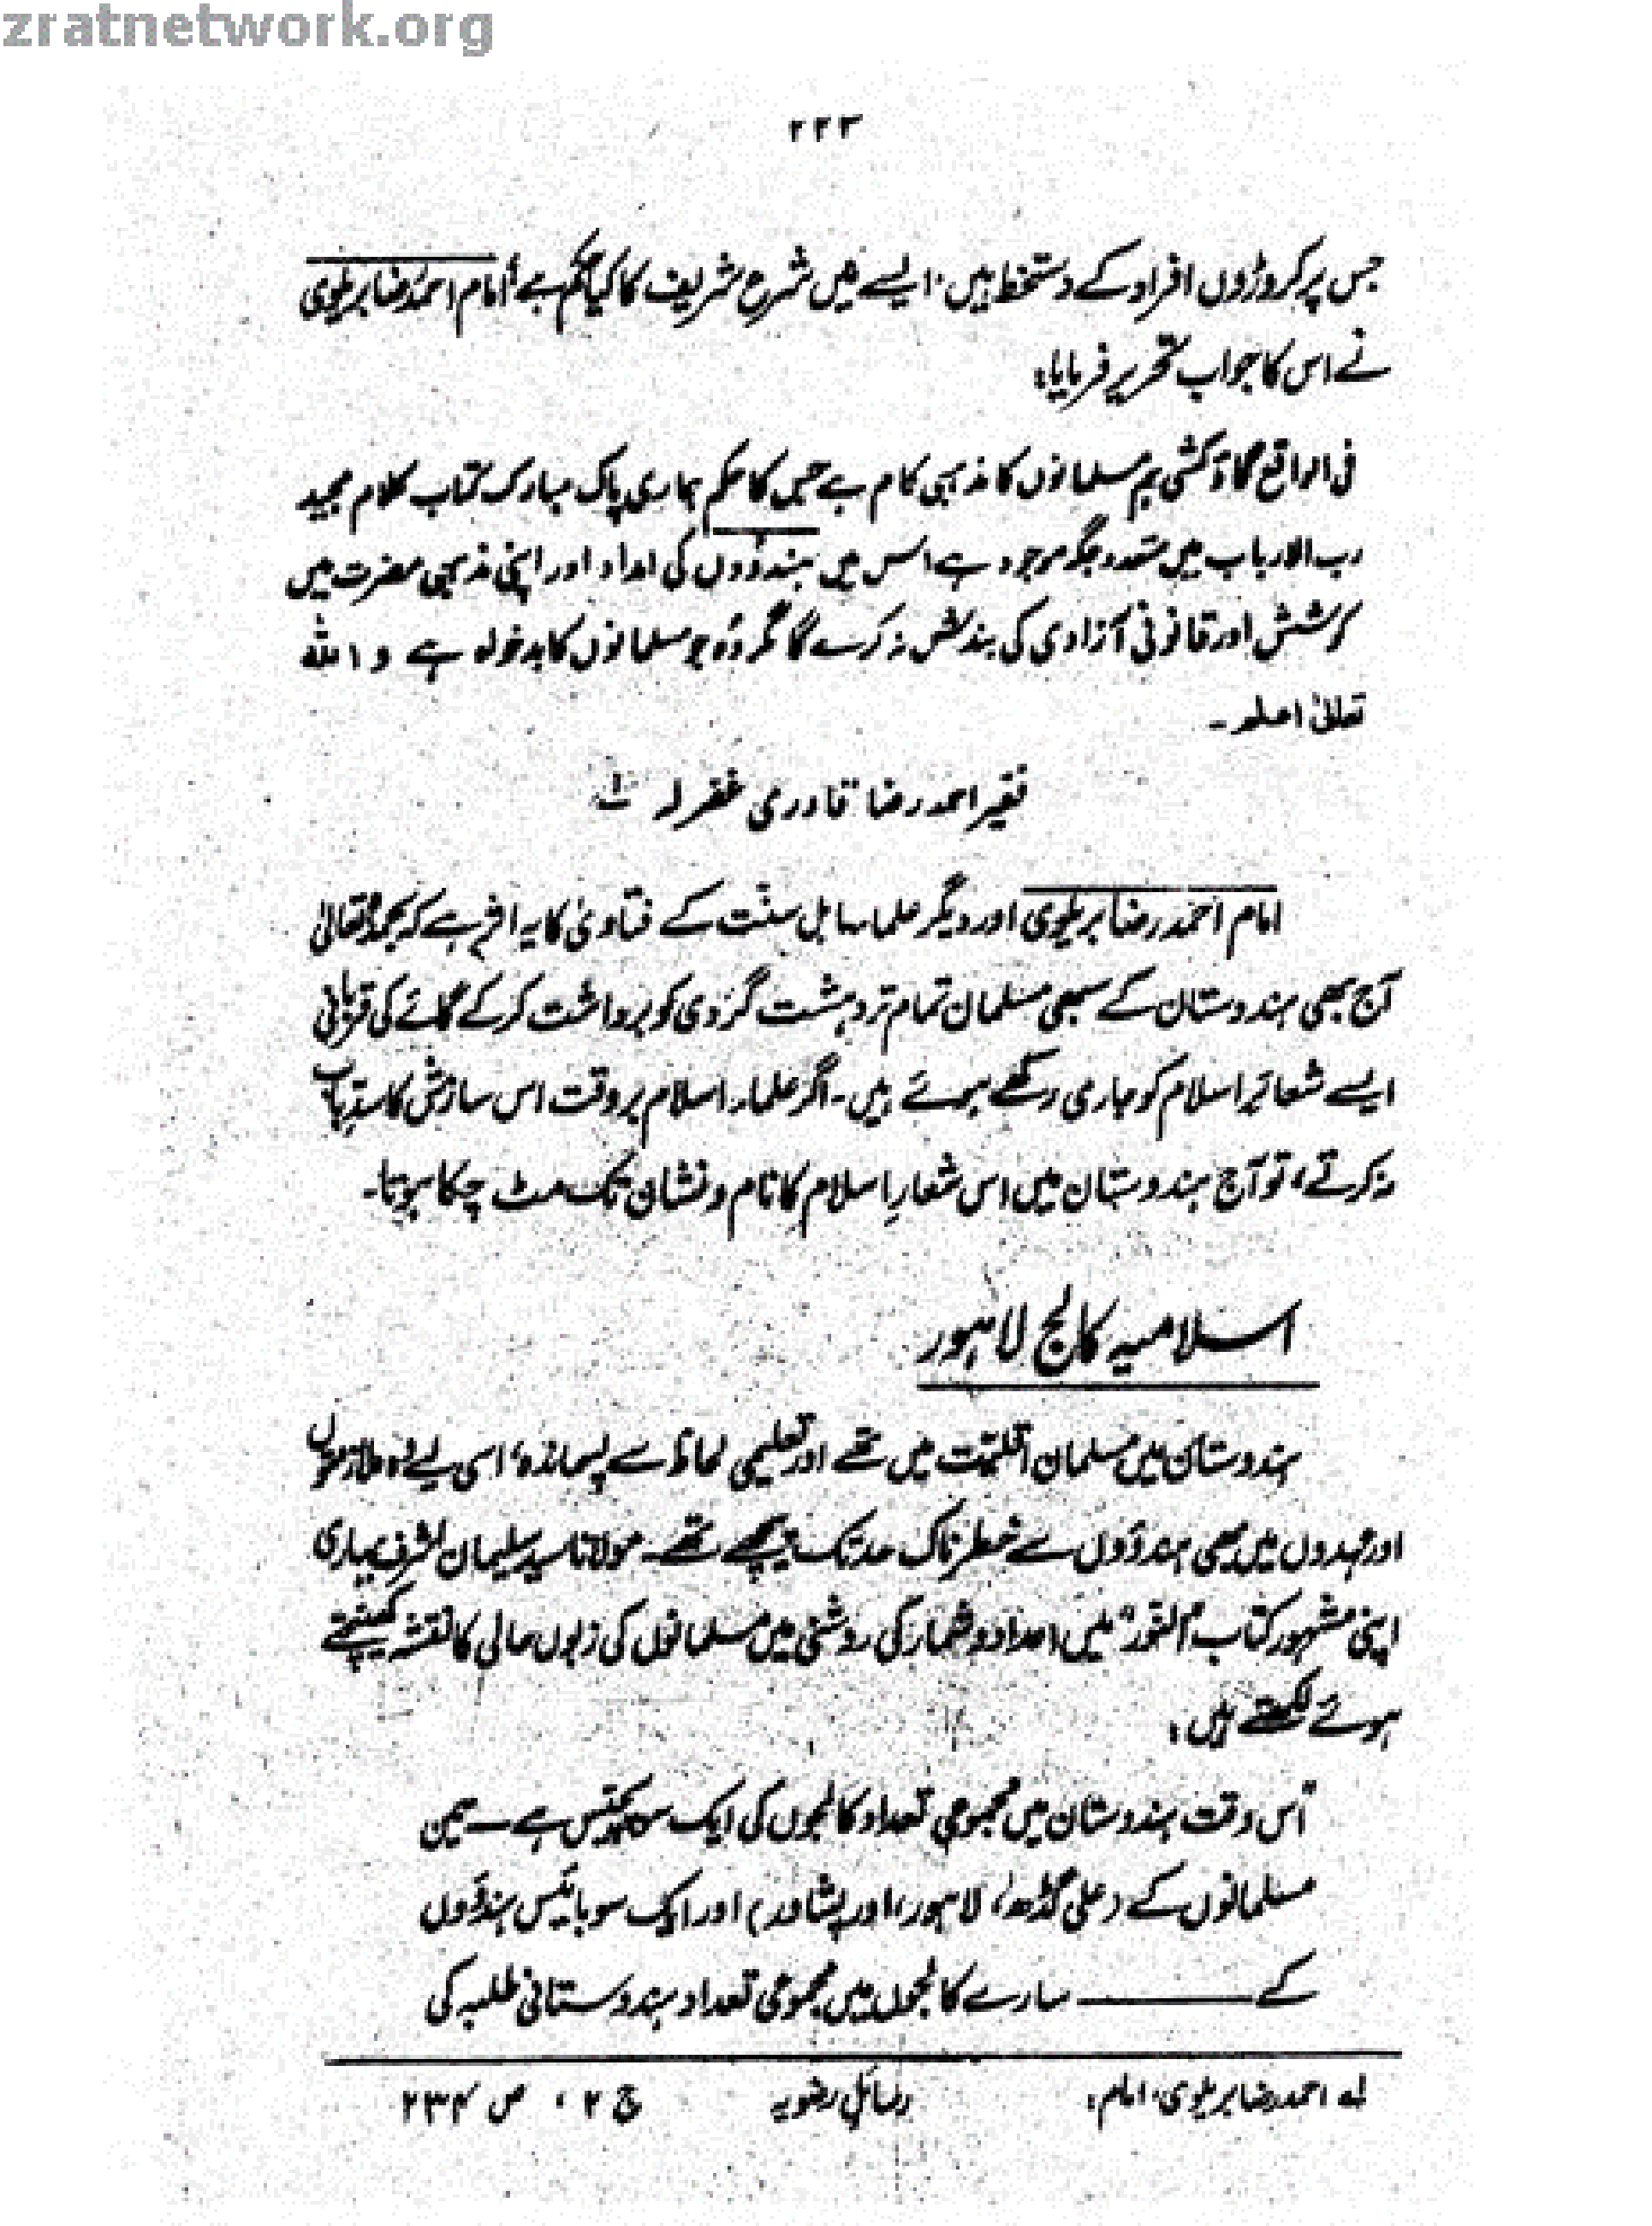 zratnetwork.org
۲۲۳
جس پر کروڑوں افراد کے دستخط ہیں، ایسے میں شرع شریف کا کیا حکم ہے؟ امام احمد رضا بریلوی
نے اس کا جواب تحریر فرمایا:
فی الواقع گاؤکشی ہم مسلمانوں کا مذہبی کام ہے جس کا حکم ہماری پاک مبارک کتاب کلام مجید
رب الارباب میں متعدد جگہ موجود ہے اس میں ہندوؤں کی امداد اور اپنی مذہبی مضرت میں
کوشش اور قانونی آزادی کی بندش نہ کرے گا مگر وہ جو مسلمانوں کا بدخواہ ہے واللہ
تعالیٰ اعلم۔
فقیر احمد رضا قادری غفرلہ لہ
امام احمد رضا بریلوی اور دیگر علماء اہل سنّت کے فتاویٰ کا یہ اثر ہے کہ بحمدہ تعالیٰ
آج بھی ہندوستان کے سبھی مسلمان تمام تر دہشت گردی کو برداشت کر کے گائے کی قربانی
ایسے شعائر اسلام کو جاری رکھے ہوئے ہیں۔ اگر علماء اسلام بروقت اس سازش کا سدِّباب
نہ کرتے، تو آج ہندوستان میں اس شعارِ اسلام کا نام و نشان تک مٹ چکا ہوتا۔
اسلامیہ کالج لاہور
ہندوستان میں مسلمان اقلیّت میں تھے اور تعلیمی لحاظ سے پسماندہ، اسی لیے وہ ملازمتوں
اور عہدوں میں بھی ہندوؤں سے خطرناک حد تک پیچھے تھے۔ مولانا سید سلیمان اشرف بہاری
اپنی مشہور کتاب "النّور" میں اعداد و شمار کی روشنی میں مسلمانوں کی زبوں حالی کا نقشہ کھینچتے
ہوئے لکھتے ہیں:
اس وقت ہندوستان میں مجموعی تعداد کالجوں کی ایک سو پچیس ہے — تین
مسلمانوں کے (علی گڑھ، لاہور، اور پشاور) اور ایک سو بائیس ہندوؤں
کے ——— سارے کالجوں میں مجموعی تعداد ہندوستانی طلبہ کی
لہ احمد رضا بریلوی، امام: رسائل رضویہ ج ۲، ص ۲۳۴